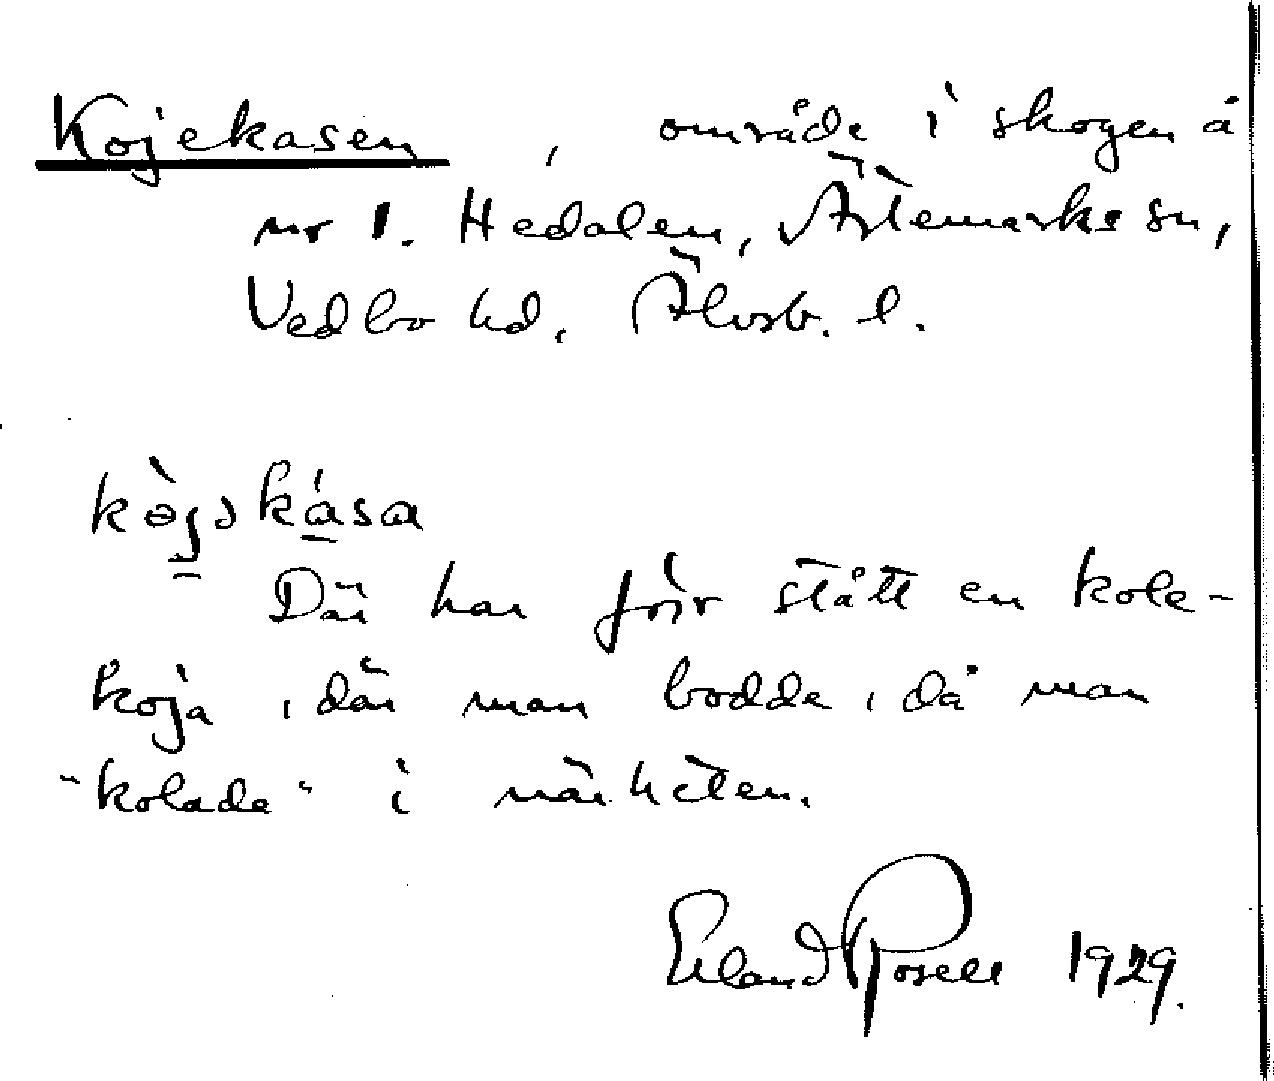 Kojekasen, område i skogen å
nr 1. Hedalen, Ärtemarks sn,
Vedbo hd. Älvsb. l.
kòjəkása
Där har förr stått en kole-
koja, där man bodde, då man
"kolade" i närheten.
Erland Rosell 1929.